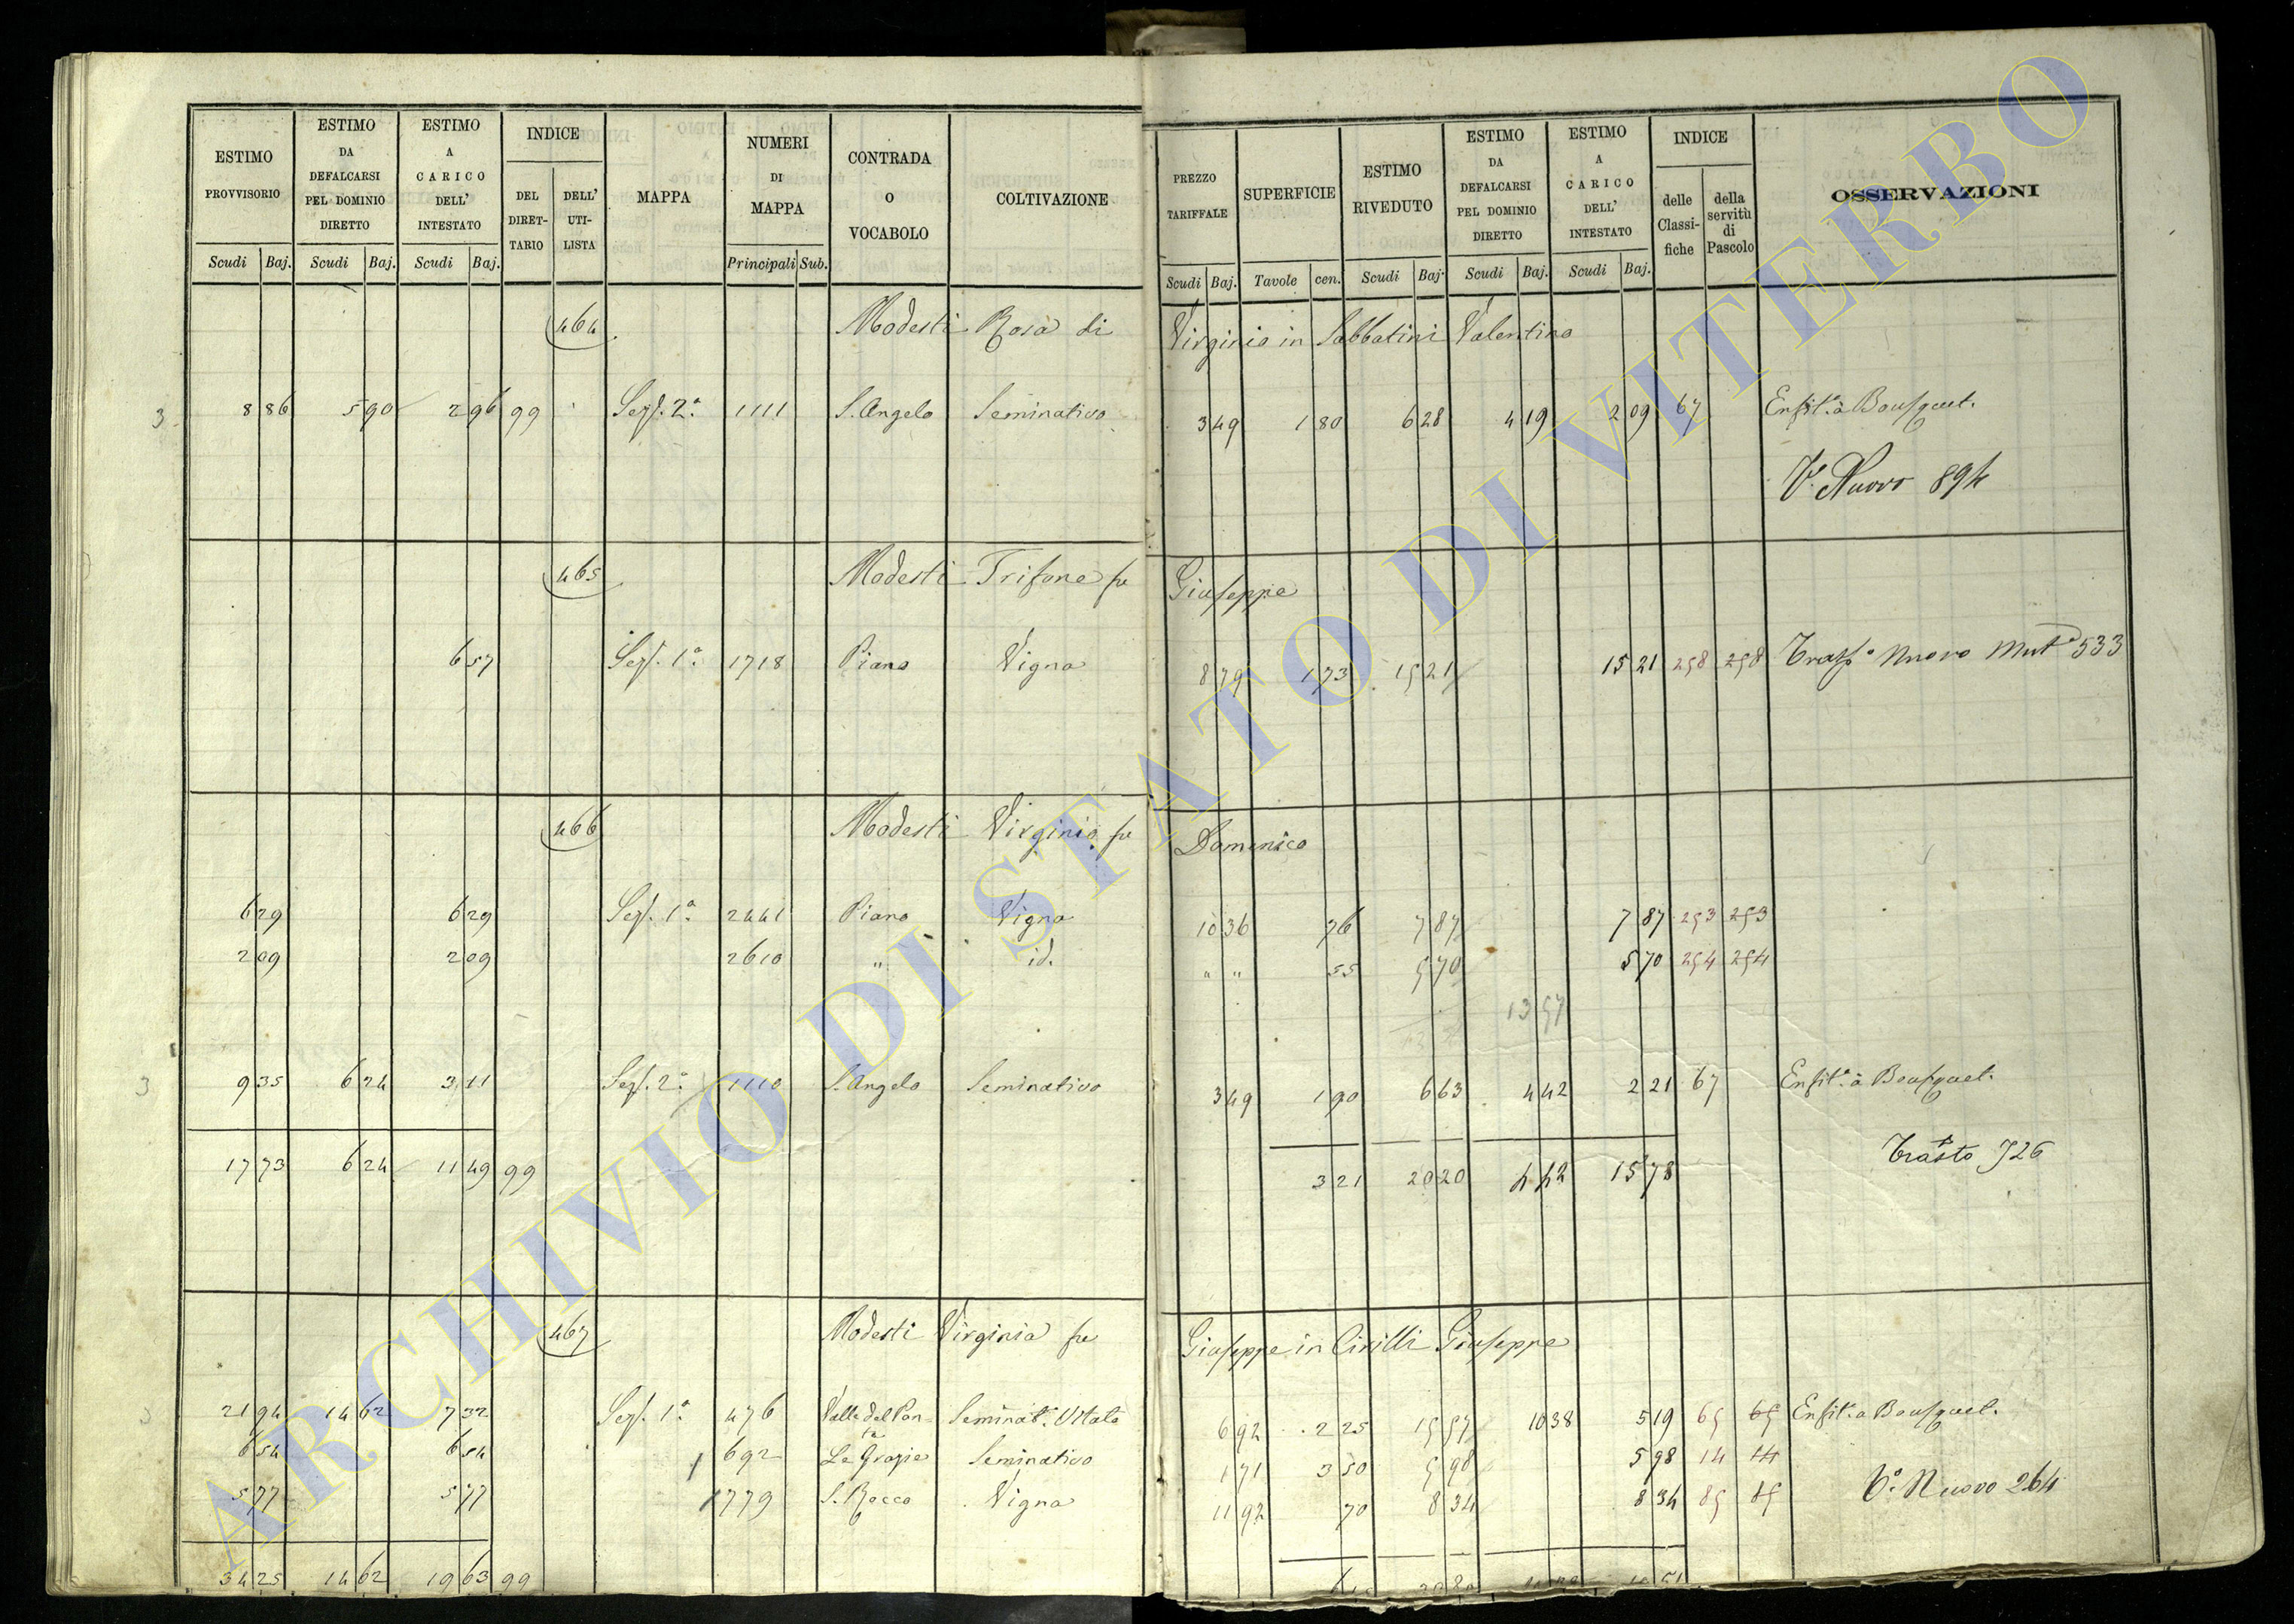 ESTIMO PROVVISORIO | ESTIMO DA DEFALCARSI PEL DOMINIO DIRETTO | ESTIMO A CARICO DELL' INTESTATO | INDICE | MAPPA | NUMERI DI MAPPA | CONTRADA O VOCABOLO | COLTIVAZIONE | PREZZO TARIFFALE | SUPERFICIE | ESTIMO RIVEDUTO | ESTIMO DA DEFALCARSI PEL DOMINIO DIRETTO | ESTIMO A CARICO DELL' INTESTATO | INDICE | OSSERVAZIONI
DEL DIRETTARIO | DELL' UTILISTA | delle Classifiche | della servitù di Pascolo
Scudi Baj. | Scudi Baj. | Scudi Baj. | Principali Sub. | Scudi Baj. | Tavole cen. | Scudi Baj | Scudi Baj. | Scudi Baj.
464 Modesti Rosa di Virginio in Sabbatini Valentino
3 8 86 5 90 2 96 99 Sez. 2ª 1111 S. Angelo Seminativo 3 49 1 80 6 28 4 19 2 09 67 Enfit.a a Bousquet.
V. Nuovo 894
465 Modesti Trifone fu Giuseppe
6 57 Sez. 1ª 1718 Piano Vigna 8 79 1 73 15 21 15 21 258 258 Trasp.o Nuovo Mut.a 533
466 Modesti Virginia fu Domenico
6 29 6 29 Sez. 1ª 2441 Piano Vigna 10 36 76 7 87 7 87 253 253
2 09 2 09 2610 " id. " " 55 5 70 5 70 254 254
13 57
3 9 35 6 24 3 11 Sez. 2ª 1110 S. Angelo Seminativo 3 49 1 90 6 63 4 42 2 21 67 Enfit.a a Bousquet.
17 73 6 24 11 49 99 3 21 20 20 4 42 15 78 Trasto 726
467 Modesti Virginia fu Giuseppe in Cirilli Giuseppe
3 21 94 14 62 7 32 Sez. 1ª 476 Valle del Ponte Seminat. Vitato 6 92 2 25 15 57 10 38 5 19 65 65 Enfit.a a Bousquet.
6 54 6 54 692 Le Grazie Seminativo 1 71 3 50 5 98 5 98 14 14
5 77 5 77 1779 S. Rocco Vigna 11 92 70 8 34 8 34 85 85 V.o Nuovo 264
34 25 14 62 19 63 99
ARCHIVIO DI STATO DI VITERBO